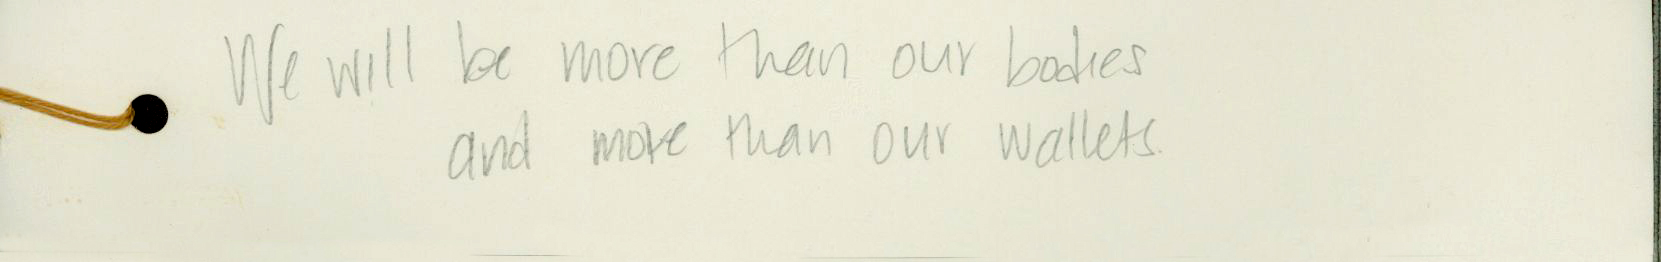 We will be more than our bodies
and more than our wallets.